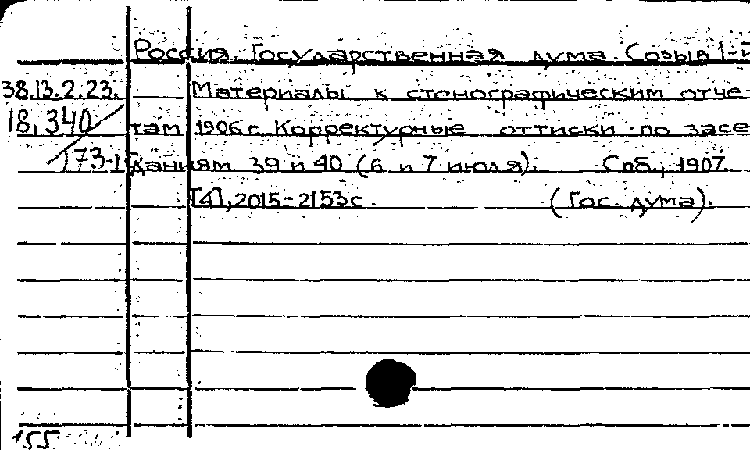 Россия. Государственная дума. Созыв 1-й
38.13.2.23. Материалы к стенографическим отче
18.340/173-1 там 1906 г. Корректурные оттиски по засе
даниям 39 и 40 (6 и 7 июля). Спб., 1907.
[4], 2015-2153 с. (Гос. дума).
155